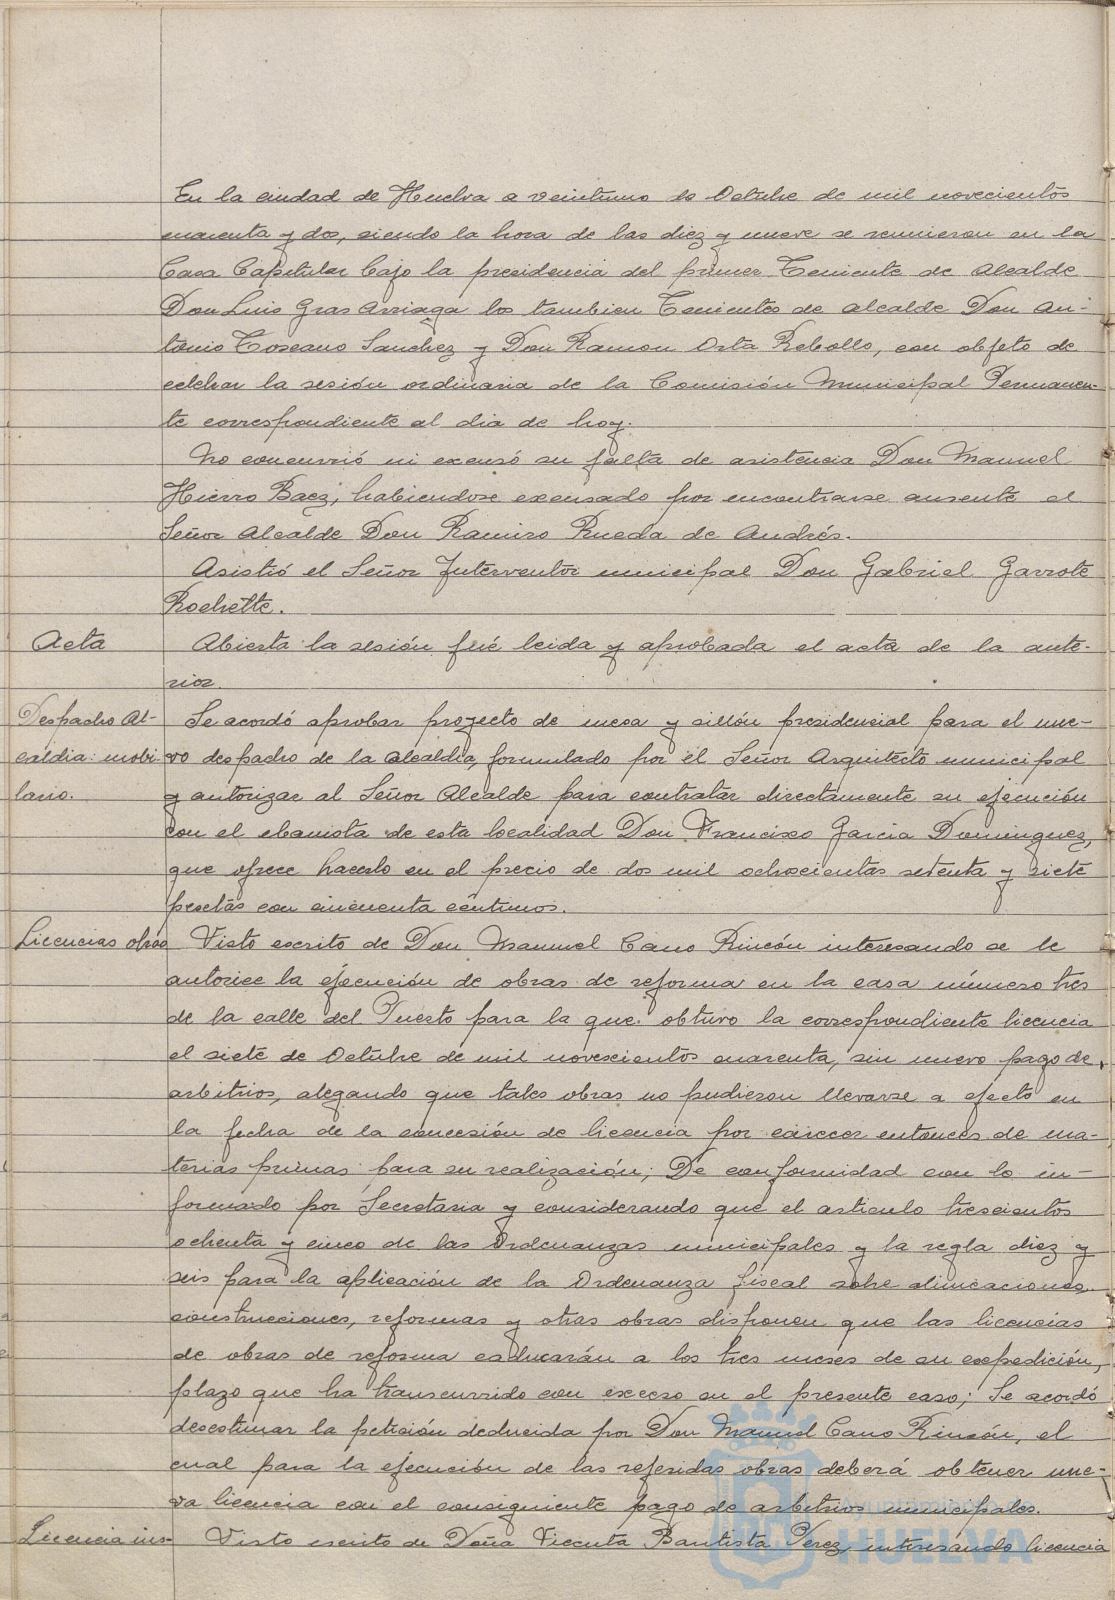 En la ciudad de Huelva a veintiuno de Octubre de mil novecientos
cuarenta y dos, siendo la hora de las diez y nueve se reunieron en la
Casa Capitular bajo la presidencia del primer Teniente de Alcalde
Don Luis Gras Arriaga los tambien Tenientes de alcalde Don An-
tonio Toscano Sanchez y Don Ramon Orta Rebollo, con objeto de
celebrar la sesión ordinaria de la Comisión Municipal Permanen-
te correspondiente al dia de hoy.
No concurrió ni excusó su falta de asistencia Don Manuel
Hierro Baez, habiendose excusado por encontrarse ausente el
Señor Alcalde Don Ramiro Rueda de Andrés.
Asistió el Señor Interventor municipal Don Gabriel Garrote
Rochette.
Acta
Abierta la sesión fué leida y aprobada el acta de la ante-
rior.
Despacho Al-
caldia: mobi-
liario.
Se acordó aprobar proyecto de mesa y sillón presidencial para el nue-
vo despacho de la Alcaldia, formulado por el Señor Arquitecto municipal
y autorizar al Señor Alcalde para contratar directamente su ejecución
con el ebanista de esta localidad Don Francisco Garcia Dominguez,
que ofrece hacerlo en el precio de dos mil ochocientas setenta y siete
pesetas con cincuenta céntimos.
Licencias obras
Visto escrito de Don Manuel Cano Rincón interesando se le
autorice la ejecución de obras de reforma en la casa número tres
de la calle del Puerto para la que obtuvo la correspondiente licencia
el siete de Octubre de mil novescientos cuarenta, sin nuevo pago de
arbitrios, alegando que tales obras no pudieron llevarse a efecto en
la fecha de la concesión de licencia por carecer entonces de ma-
terias primas para su realización; De conformidad con lo in-
formado por Secretaria y considerando que el articulo trescientos
ochenta y cinco de las Ordenanzas municipales y la regla diez y
seis para la aplicación de la Ordenanza fiscal sobre alineaciones
construcciones, reformas y otras obras disponen que las licencias
de obras de reforma caducarán a los tres meses de su expedición,
plazo que ha transcurrido con exceso en el presente caso; Se acordó
desestimar la petición deducida por Don Manuel Cano Rincón, el
cual para la ejecución de las referidas obras deberá obtener nue-
va licencia con el consiguiente pago de arbitrios municipales.
Licencia ins-
Visto escrito de Doña Vicenta Bautista Perez, interesando licencia
HUELVA